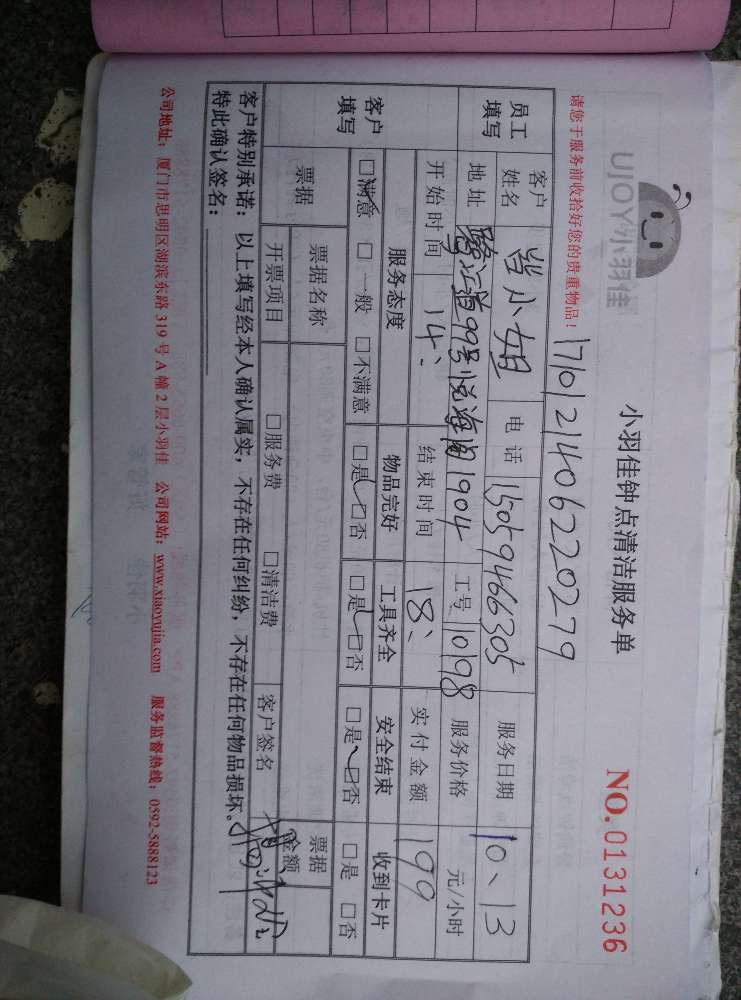 UJOY小羽佳
小羽佳钟点清洁服务单
NO. 0131236
请您于服务前收拾好您的贵重物品！
17101214062220279
员工填写 客户姓名 小姐 电话 15059466305 服务日期 10、13
地址 99号悦海阁1904 工号 1098 服务价格 元/小时
开始时间 14： 结束时间 18： 实付金额 199
客户填写 服务态度 物品完好 工具齐全 安全结束 收到卡片
□满意 □一般 □不满意 □是 □否 □是 □否 □是 □否 □是 □否
票据 票据名称 票据金额
开票项目 □服务费 □清洁费 客户签名
客户特别承诺：以上填写经本人确认属实，不存在任何纠纷，不存在任何物品损坏。
特此确认签名：
公司地址：厦门市思明区湖滨东路 319 号 A 幢 2 层小羽佳 公司网站：www.xiaoyujia.com 服务监督热线：0592-5888123